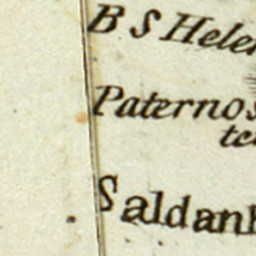 B S Helen
Paternos
te
Saldanh